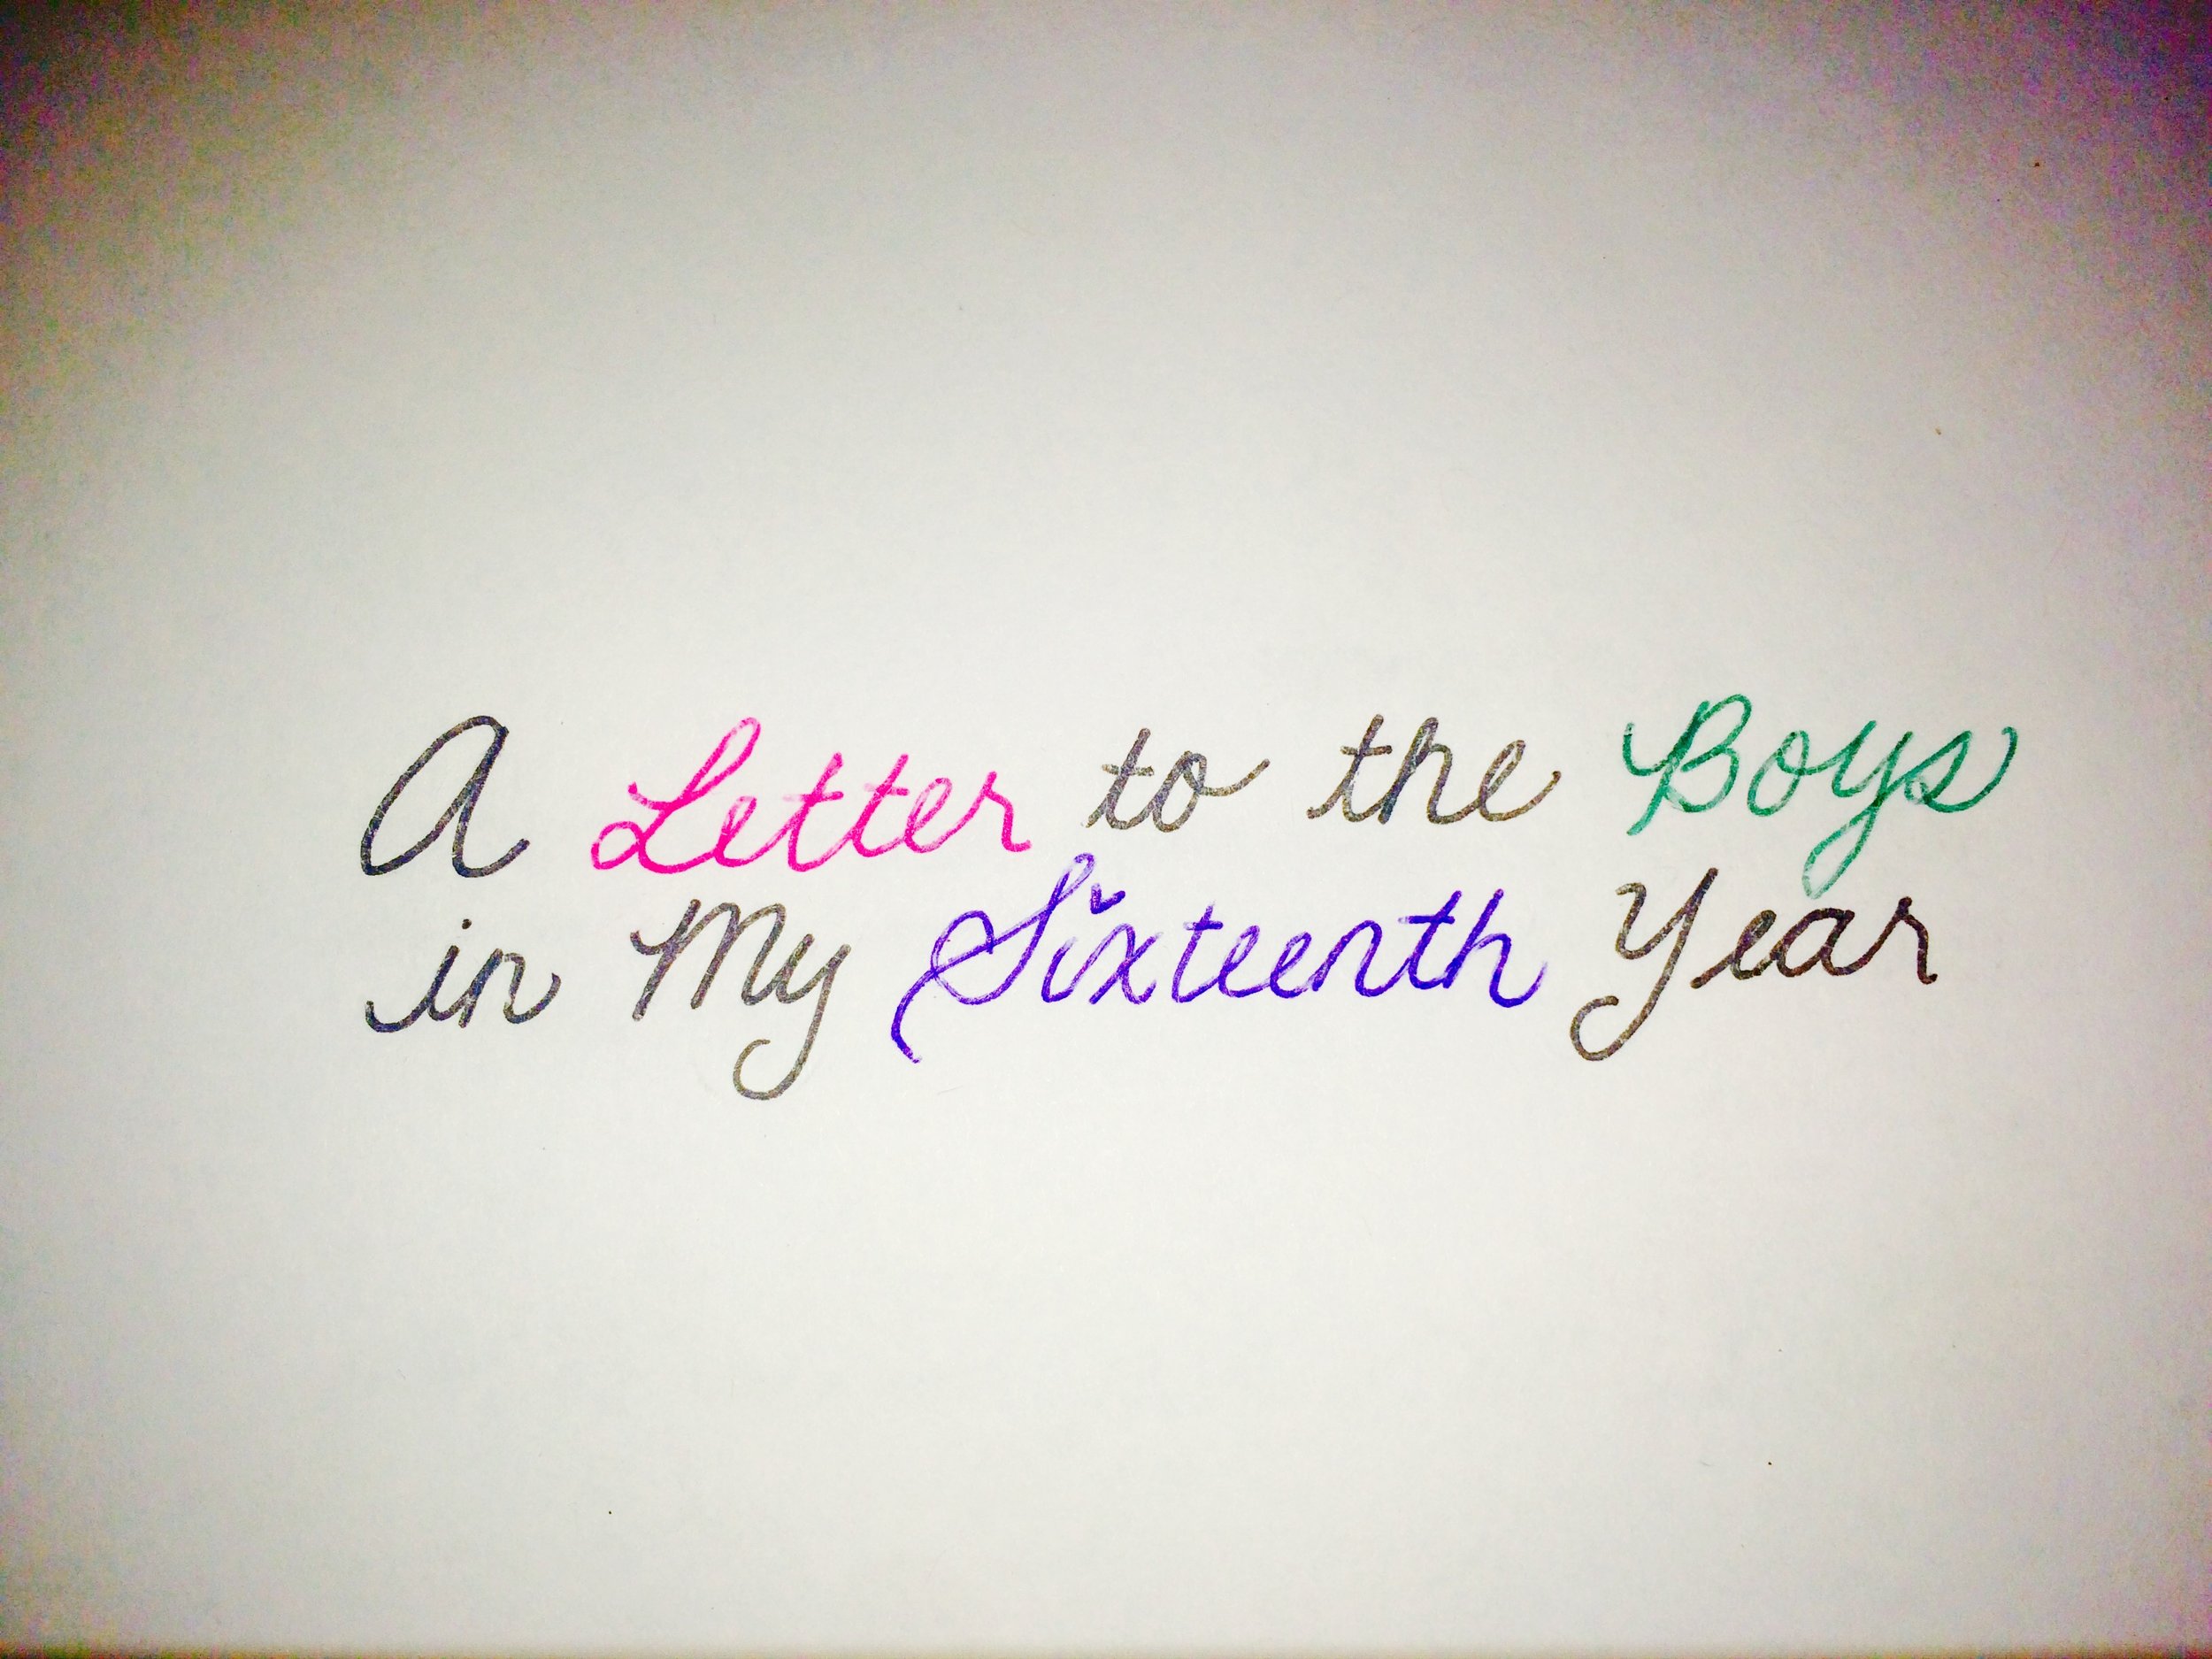 A Letter to the Boys
in My Sixteenth Year